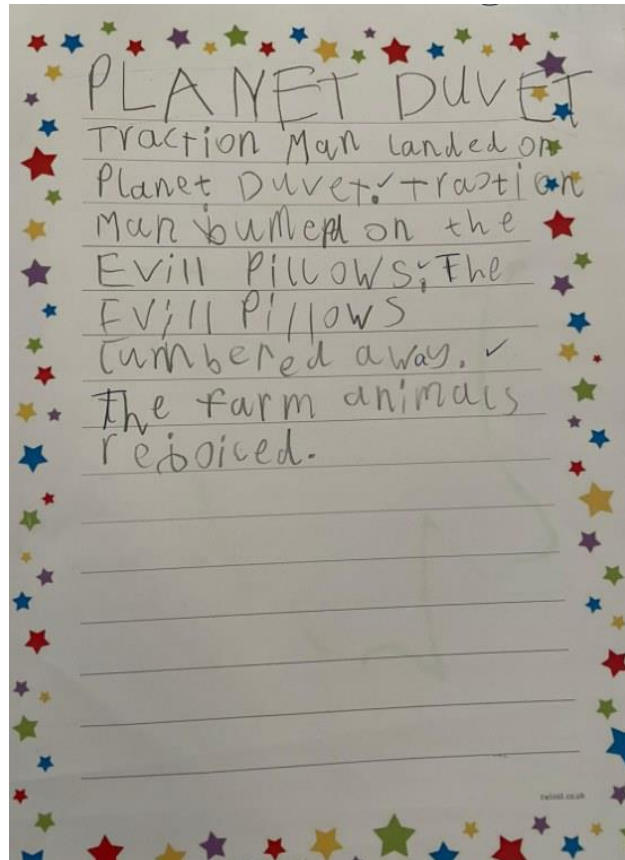 PLANET DUVET
Traction Man landed on
Planet Duvet. Traction
Man bumed on the
Evill Pillows. The
Evill Pillows
Lumbered away.
The farm animals
rejoiced.
twinkl.co.uk